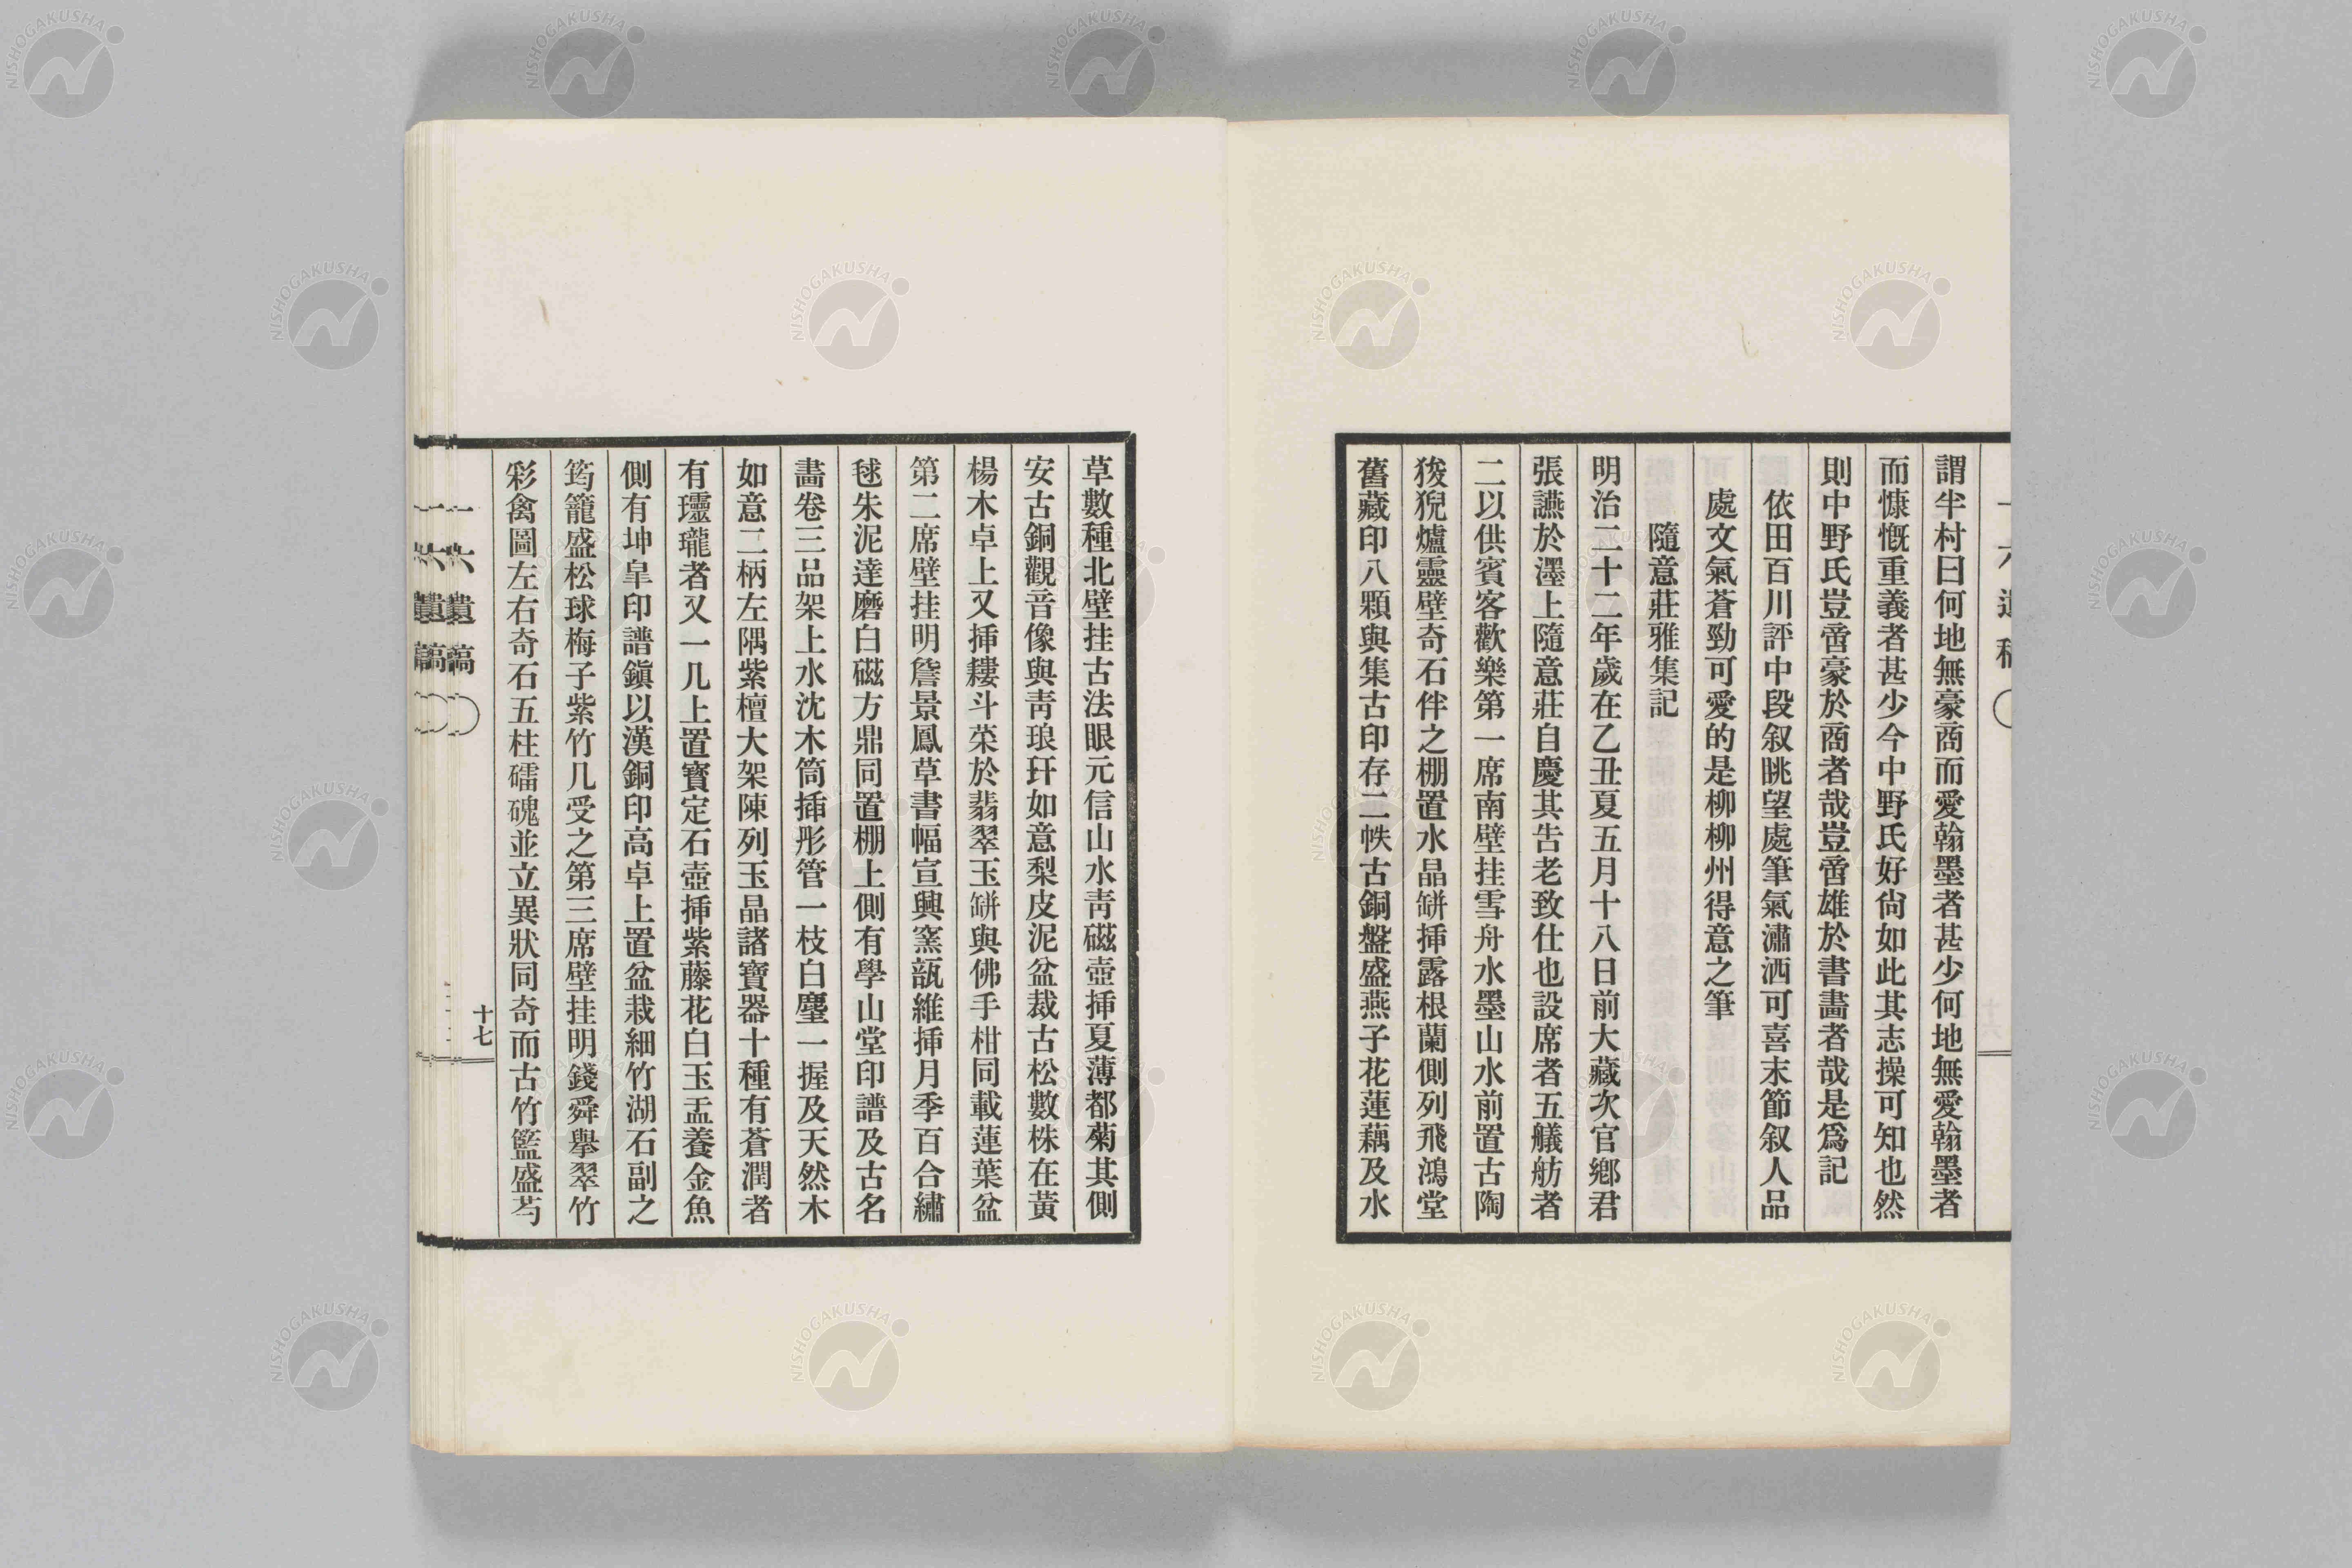 謂半村曰何地無豪商而愛翰墨者甚少何地無愛翰墨者
而慷慨重義者甚少今中野氏好尙如此其志操可知也然
則中野氏豈啻豪於商者哉豈啻雄於書畫者哉是爲記
依田百川評中段叙眺望處筆氣瀟洒可喜末節叙人品
處文氣蒼勁可愛的是柳柳州得意之筆
隨意莊雅集記
明治二十二年歲在乙丑夏五月十八日前大藏次官鄉君
張讌於濹上隨意莊自慶其告老致仕也設席者五艤舫者
二以供賓客歡樂第一席南壁挂雪舟水墨山水前置古陶
狻猊爐靈壁奇石伴之棚置水晶缾揷露根蘭側列飛鴻堂
舊藏印八顆與集古印存二帙古銅盤盛燕子花蓮藕及水
草數種北壁挂古法眼元信山水靑磁壺揷夏薄都菊其側
安古銅觀音像與靑琅玕如意梨皮泥盆裁古松數株在黃
楊木卓上又揷耬斗菜於翡翠玉缾與佛手柑同載蓮葉盆
第二席壁挂明詹景鳳草書幅宣興窯瓿維揷月季百合繡
毬朱泥達磨白磁方鼎同置棚上側有學山堂印譜及古名
畫卷三品架上水沈木筒揷彤管一枝白麈一握及天然木
如意二柄左隅紫檀大架陳列玉晶諸寶器十種有蒼潤者
有瓐瓏者又一几上置寶定石壺揷紫藤花白玉盂養金魚
側有坤皐印譜鎭以漢銅印高卓上置盆栽細竹湖石副之
筠籠盛松球梅子紫竹几受之第三席壁挂明錢舜擧翠竹
彩禽圖左右奇石五柱礌磈並立異狀同奇而古竹籃盛芍
一六遺稿
十七
NISHOGAKUSHA